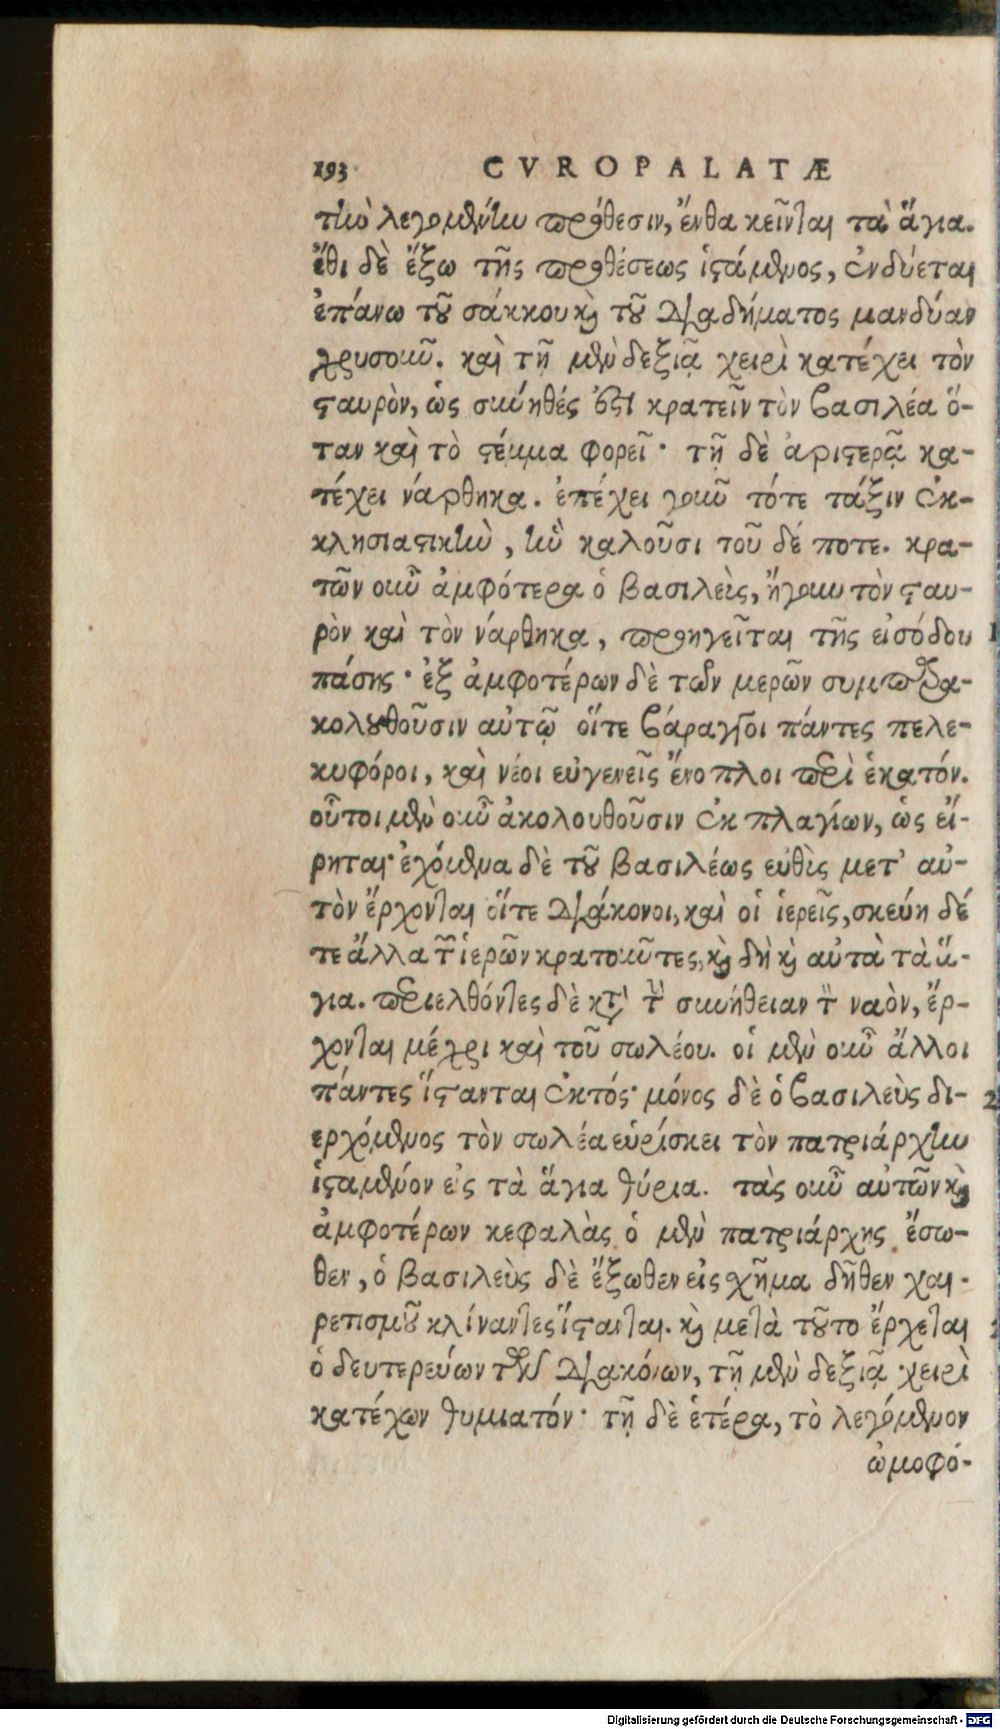 193 CVROPALATÆ
τὴν λεγομένην πρόθεσιν, ἔνθα κεῖνται τὰ ἅγια.
ἔτι δὲ ἔξω τῆς προθέσεως ἱστάμενος, ἐνδύεται
ἐπάνω τοῦ σάκκου καὶ τοῦ διαδήματος μανδύαν
χρυσοῦν. καὶ τῇ μὲν δεξιᾷ χειρὶ κατέχει τὸν
σταυρὸν, ὡς σύνηθές ἐστι κρατεῖν τὸν βασιλέα ὅ-
ταν καὶ τὸ στέμμα φορεῖ· τῇ δὲ ἀριστερᾷ κα-
τέχει νάρθηκα. ἐπέχει γοῦν τότε τάξιν ἐκ-
κλησιαστικὴν, ἣν καλοῦσι τοῦ δέ ποτε. κρα-
τῶν οὖν ἀμφότερα ὁ βασιλεὺς, ἤγουν τὸν σταυ-
ρὸν καὶ τὸν νάρθηκα, προηγεῖται τῆς εἰσόδου
πάσης· ἐξ ἀμφοτέρων δὲ τῶν μερῶν συμπαρα-
κολουθοῦσιν αὐτῷ οἵτε βάραγγοι πάντες πελε-
κυφόροι, καὶ νέοι εὐγενεῖς ἔνοπλοι περὶ ἑκατόν.
οὗτοι μὲν οὖν ἀκολουθοῦσιν ἐκ πλαγίων, ὡς εἴ-
ρηται· ἐχόμενα δὲ τοῦ βασιλέως εὐθὺς μετ' αὐ-
τὸν ἔρχονται οἵτε διάκονοι, καὶ οἱ ἱερεῖς, σκεύη δέ
τε ἄλλα τῶν ἱερῶν κρατοῦντες, καὶ δὴ καὶ αὐτὰ τὰ ἅ-
για. περιελθόντες δὲ κατὰ τὴν συνήθειαν τὸν ναὸν, ἔρ-
χονται μέχρι καὶ τοῦ σωλέου. οἱ μὲν οὖν ἄλλοι
πάντες ἵστανται ἐκτός· μόνος δὲ ὁ βασιλεὺς δι-
ερχόμενος τὸν σωλέα εὑρίσκει τὸν πατριάρχην
ἱστάμενον εἰς τὰ ἅγια θύρια. τὰς οὖν αὐτῶν καὶ
ἀμφοτέρων κεφαλὰς ὁ μὲν πατριάρχης ἔσω-
θεν, ὁ βασιλεὺς δὲ ἔξωθεν εἰς χῆμα δῆθεν χαι-
ρετισμοῦ κλίναντες ἵστανται. καὶ μετὰ τοῦτο ἔρχεται
ὁ δευτερεύων τῶν διακόνων, τῇ μὲν δεξιᾷ χειρὶ
κατέχων θυμιατόν· τῇ δὲ ἑτέρᾳ, τὸ λεγόμενον
ὠμοφό-
Digitalisierung gefördert durch die Deutsche Forschungsgemeinschaft - DFG